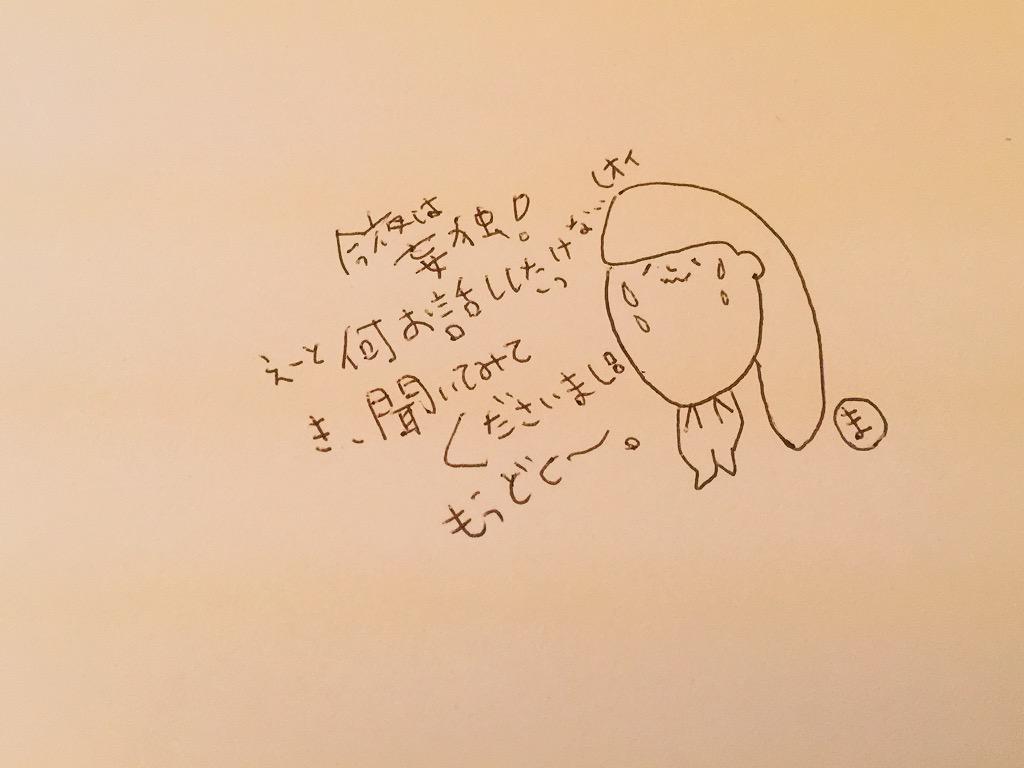 今夜は
妄独!
えーと何お話ししたっけな…(オイ
き、聞いてみて
くださいまし。
もっどくー。
ま